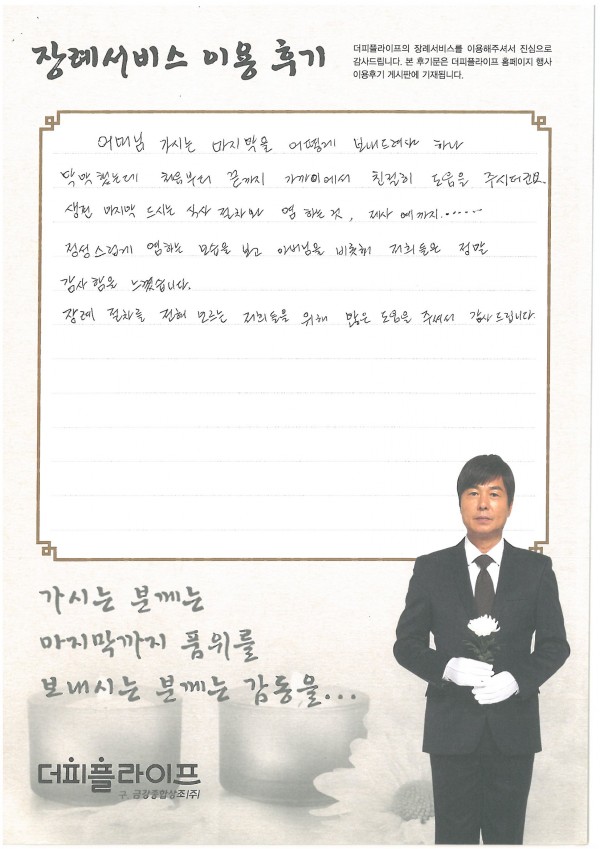 장례서비스 이용 후기
더피플라이프의 장례서비스를 이용해주셔서 진심으로
감사드립니다. 본 후기문은 더피플라이프 홈페이지 행사
이용후기 게시판에 기재됩니다.
어머님 가시는 마지막을 어떻게 보내드려야 하나
막막했는데 처음부터 끝까지 가까이에서 친절히 도움을 주시더군요.
생전 마지막 드시는 식사 절차와 염 하는것, 제사 예까지.......
정성스럽게 염하는 모습을 보고 아버님을 비롯해 저희들은 정말
감사함을 느꼈습니다.
장례 절차를 전혀 모르는 저희들을 위해 많은 도움을 주셔서 감사드립니다.
가시는 분께는
마지막까지 품위를
보내시는 분께는 감동을...
더피플라이프
구. 금강종합상조(주)